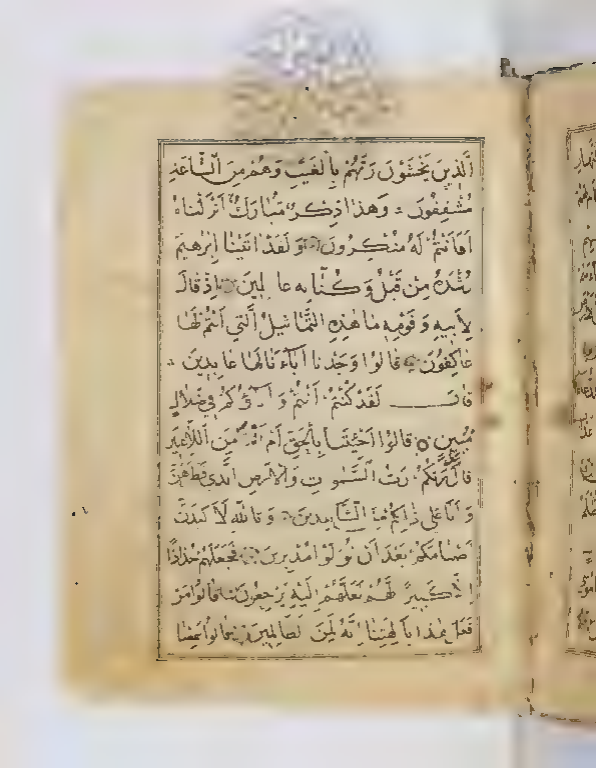 الَّذِينَ يَخْشَوْنَ رَبَّهُمْ بِالْغَيْبِ وَهُمْ مِنَ السَّاعَةِ
مُشْفِقُونَ وَهٰذَا ذِكْرٌ مُبَارَكٌ اَنْزَلْنَاهُ
اَفَاَنْتُمْ لَهُ مُنْكِرُونَ وَلَقَدْ اٰتَيْنَا اِبْرٰهِيمَ
رُشْدَهُ مِنْ قَبْلُ وَكُنَّا بِهِ عَالِمِينَ اِذْ قَالَ
لِاَبِيهِ وَقَوْمِهِ مَا هٰذِهِ التَّمَاثِيلُ الَّتِي اَنْتُمْ لَهَا
عَاكِفُونَ قَالُوا وَجَدْنَا اٰبَاءَنَا لَهَا عَابِدِينَ
قَالَ لَقَدْ كُنْتُمْ اَنْتُمْ وَاٰبَاؤُكُمْ فِي ضَلَالٍ
مُبِينٍ قَالُوا اَجِئْتَنَا بِالْحَقِّ اَمْ اَنْتَ مِنَ اللَّاعِبِينَ
قَالَ بَلْ رَبُّكُمْ رَبُّ السَّمٰوَاتِ وَالْاَرْضِ الَّذِي فَطَرَهُنَّ
وَاَنَا عَلٰى ذٰلِكُمْ مِنَ الشَّاهِدِينَ وَتَاللّٰهِ لَاَكِيدَنَّ
اَصْنَامَكُمْ بَعْدَ اَنْ تُوَلُّوا مُدْبِرِينَ فَجَعَلَهُمْ جُذَاذًا
اِلَّا كَبِيرًا لَهُمْ لَعَلَّهُمْ اِلَيْهِ يَرْجِعُونَ قَالُوا مَنْ
فَعَلَ هٰذَا بِاٰلِهَتِنَا اِنَّهُ لَمِنَ الظَّالِمِينَ قَالُوا سَمِعْنَا